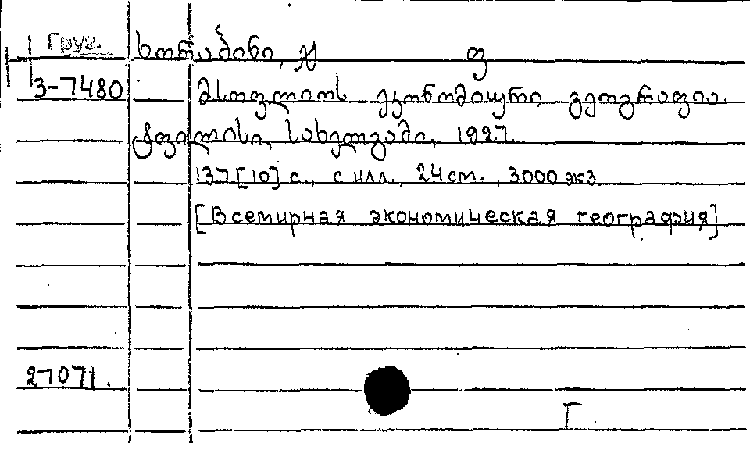 Груз.
ხორაბინი, ჯ ფ
3-7480 მსოფლიოს ეკონომიური გეოგრაფია.
ტფილისი, სახელგამი, 1927.
137[10] с., с илл., 24 см., 3000 экз
[Всемирная экономическая география]
27071.
Г